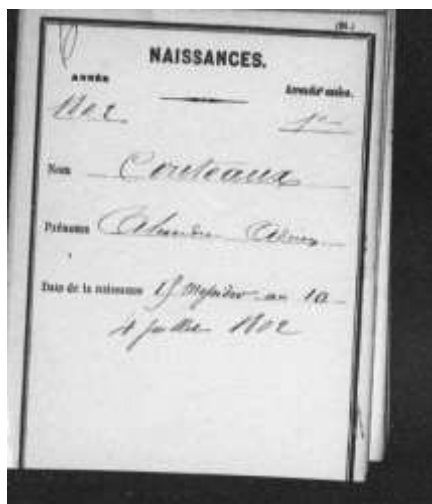 NAISSANCES.
ANNÉE Arrondt ancien.
1802 1er
Nom Couteaux
Prénoms Alexandre
Date de la naissance 15 Messidor an 10
4 juillet 1802